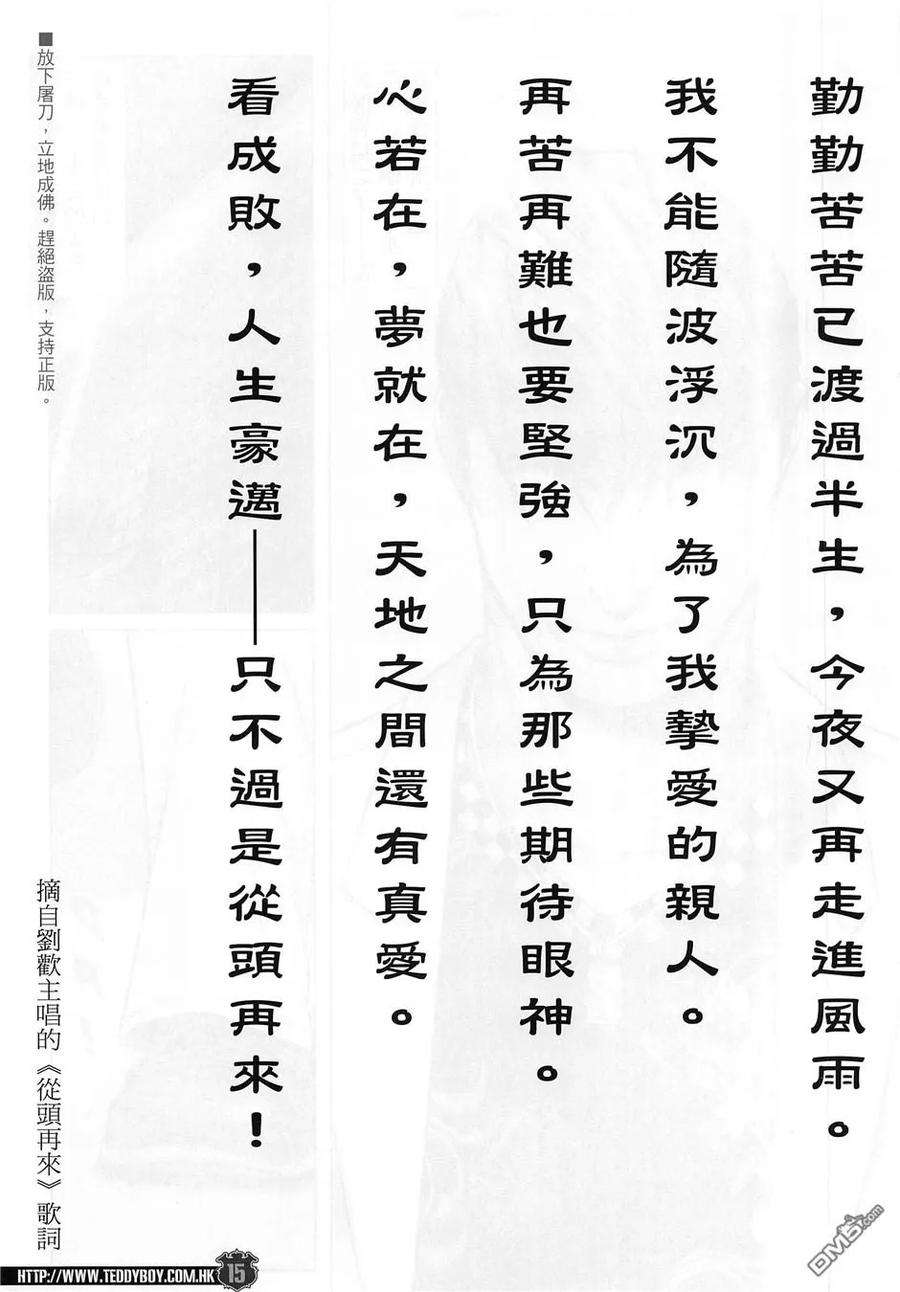 勤勤苦苦已渡過半生，今夜又再走進風雨。
我不能隨波浮沉，為了我摯愛的親人。
再苦再難也要堅強，只為那些期待眼神。
心若在，夢就在，天地之間還有真愛。
看成敗，人生豪邁——只不過是從頭再來！
摘自劉歡主唱的《從頭再來》歌詞
■放下屠刀，立地成佛。趕絕盜版，支持正版。
HTTP://WWW.TEDDYBOY.COM.HK 15
DM5.com